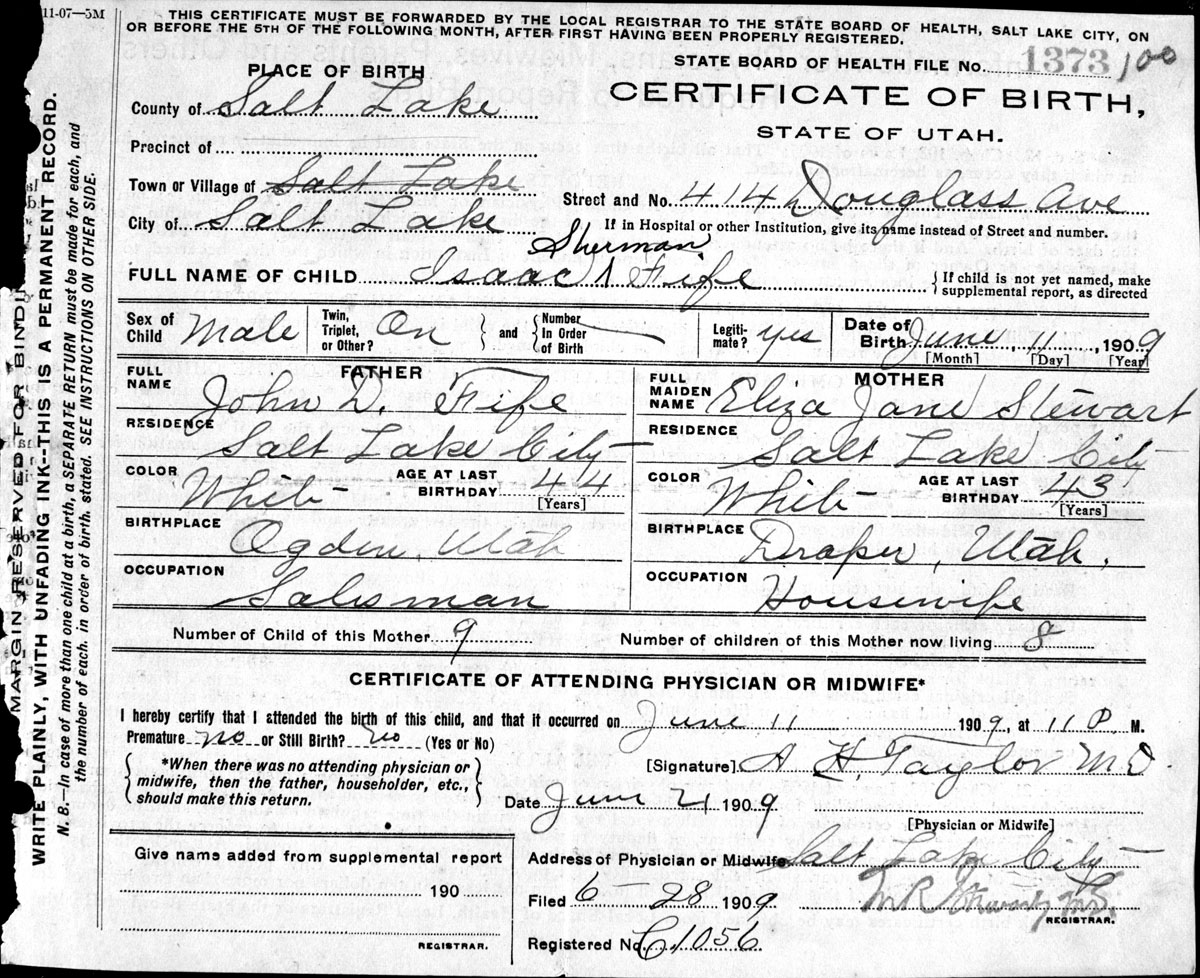 11-07—5M
THIS CERTIFICATE MUST BE FORWARDED BY THE LOCAL REGISTRAR TO THE STATE BOARD OF HEALTH, SALT LAKE CITY, ON
OR BEFORE THE 5TH OF THE FOLLOWING MONTH, AFTER FIRST HAVING BEEN PROPERLY REGISTERED.
STATE BOARD OF HEALTH FILE No. 1373 100
PLACE OF BIRTH
CERTIFICATE OF BIRTH,
STATE OF UTAH.
County of Salt Lake
Precinct of
Town or Village of Salt Lake
Street and No. 414 Douglass Ave
City of Salt Lake
If in Hospital or other Institution, give its name instead of Street and number.
Sherman
FULL NAME OF CHILD Isaac Fife
{If child is not yet named, make
supplemental report, as directed
Sex of Child Male
Twin, Triplet, or Other? On
and Number in Order of Birth
Legiti-mate? yes
Date of Birth June 11, 1909
[Month] [Day] [Year]
FATHER
FULL NAME John D. Fife
RESIDENCE Salt Lake City
COLOR White AGE AT LAST BIRTHDAY 44
[Years]
BIRTHPLACE Ogden, Utah
OCCUPATION Salesman
MOTHER
FULL MAIDEN NAME Eliza Jane Stewart
RESIDENCE Salt Lake City
COLOR White AGE AT LAST BIRTHDAY 43
[Years]
BIRTHPLACE Draper, Utah.
OCCUPATION Housewife
Number of Child of this Mother 9
Number of children of this Mother now living 8
CERTIFICATE OF ATTENDING PHYSICIAN OR MIDWIFE*
I hereby certify that I attended the birth of this child, and that it occurred on June 11 1909, at 11 P. M.
Premature no or Still Birth? no (Yes or No)
{*When there was no attending physician or
midwife, then the father, householder, etc.,
should make this return.}
[Signature] A H. Taylor MD
Date June 21 1909
[Physician or Midwife]
Give name added from supplemental report
190
REGISTRAR.
Address of Physician or Midwife Salt Lake City
Filed 6-28 1909
REGISTRAR.
Registered No. C.1056
MARGIN RESERVED FOR BINDIN
WRITE PLAINLY, WITH UNFADING INK--THIS IS A PERMANENT RECORD.
N. B.—In case of more than one child at a birth, a SEPARATE RETURN must be made for each, and
the number of each, in order of birth, stated. SEE INSTRUCTIONS ON OTHER SIDE.